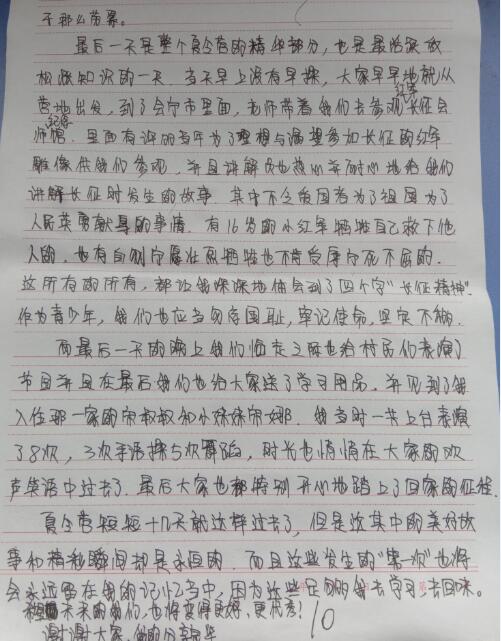 不那么劳累。
最后一天是整个夏令营的精华部分，也是最给我放
松涨知识的一天。当天早上没有早操，大家早早地就从
营地出发，到了会宁市里面，老师带着我们去参观红军长征会
师纪念馆。里面有许多年为了理想与渴望参加长征的红军
雕像供我们参观，并且讲解员也热心并耐心地给我们
讲解长征时发生的故事。其中不乏有因着为了祖国为了
人民英勇献身的事情。有16岁的小红军牺牲自己救下他
人的，也有自刎宁愿壮烈牺牲也不肯受辱宁死不屈的。
这所有的所有，都让我深深地体会到了四个字“长征精神”。
作为青少年，我们也应当勿忘国耻，牢记使命，坚定不移。
而最后一天的晚上我们临走之际也给村民们表演了
节目并且在最后我们也给大家送了学习用品。并见到了我
入住那一家的宋叔叔和小妹妹宋娜。我当时一共上台表演
了8次，3次手语操5次舞蹈，时长也悄悄在大家的欢
声笑语中过去了。最后大家也都特别开心地踏上了回家的征程。
夏令营短短十几天就这样过去了，但是这其中的美好故
事和精彩瞬间却是永恒的。而且这些发生的“第一次”也将
会永远留在我的记忆当中，因为这些足够我去学习，去回味。
相信未来的我们，也将变得更好，更优秀！
谢谢大家，我的分享完毕
10